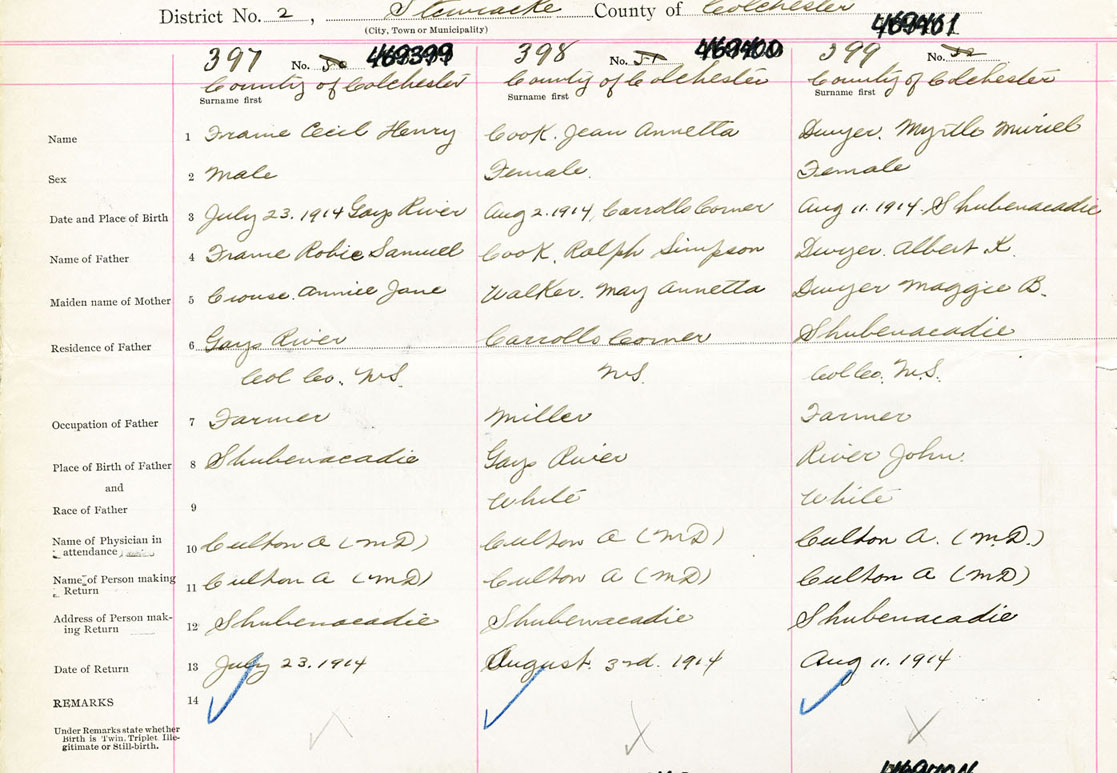 District No. 2, Stewiacke County of Colchester
(City, Town or Municipality)
397 No. 50 469399 398 No. 51 469400 399 No. 52 469401
County of Colchester County of Colchester County of Colchester
Surname first Surname first Surname first
Name 1 Frame Cecil Henry Cook. Jean Annetta Dwyer. Myrtle Muriel
Sex 2 Male Female. Female
Date and Place of Birth 3 July 23. 1914 Gays River Aug 2. 1914, Carrolls Corner Aug 11. 1914. Shubenacadie
Name of Father 4 Frame Robie Samuel Cook. Ralph Simpson Dwyer. Albert K.
Maiden name of Mother 5 Crouse. Annie Jane Walker. May Annetta Dwyer Maggie B.
Residence of Father 6 Gays River Carrolls Corner Shubenacadie
Col Co. N.S. N.S. Col Co. N.S.
Occupation of Father 7 Farmer Miller Farmer
Place of Birth of Father 8 Shubenacadie Gays River River John.
and
Race of Father 9 White White
Name of Physician in attendance 10 Culton A (M.D) Culton A (M.D) Culton A. (M.D.)
Name of Person making Return 11 Culton A (M.D) Culton A (M.D) Culton A (M.D)
Address of Person making Return 12 Shubenacadie Shubenacadie Shubenacadie
Date of Return 13 July 23. 1914 August 3rd. 1914 Aug 11. 1914
REMARKS 14
Under Remarks state whether
Birth is Twin. Triplet. Ille-
gitimate or Still-birth.